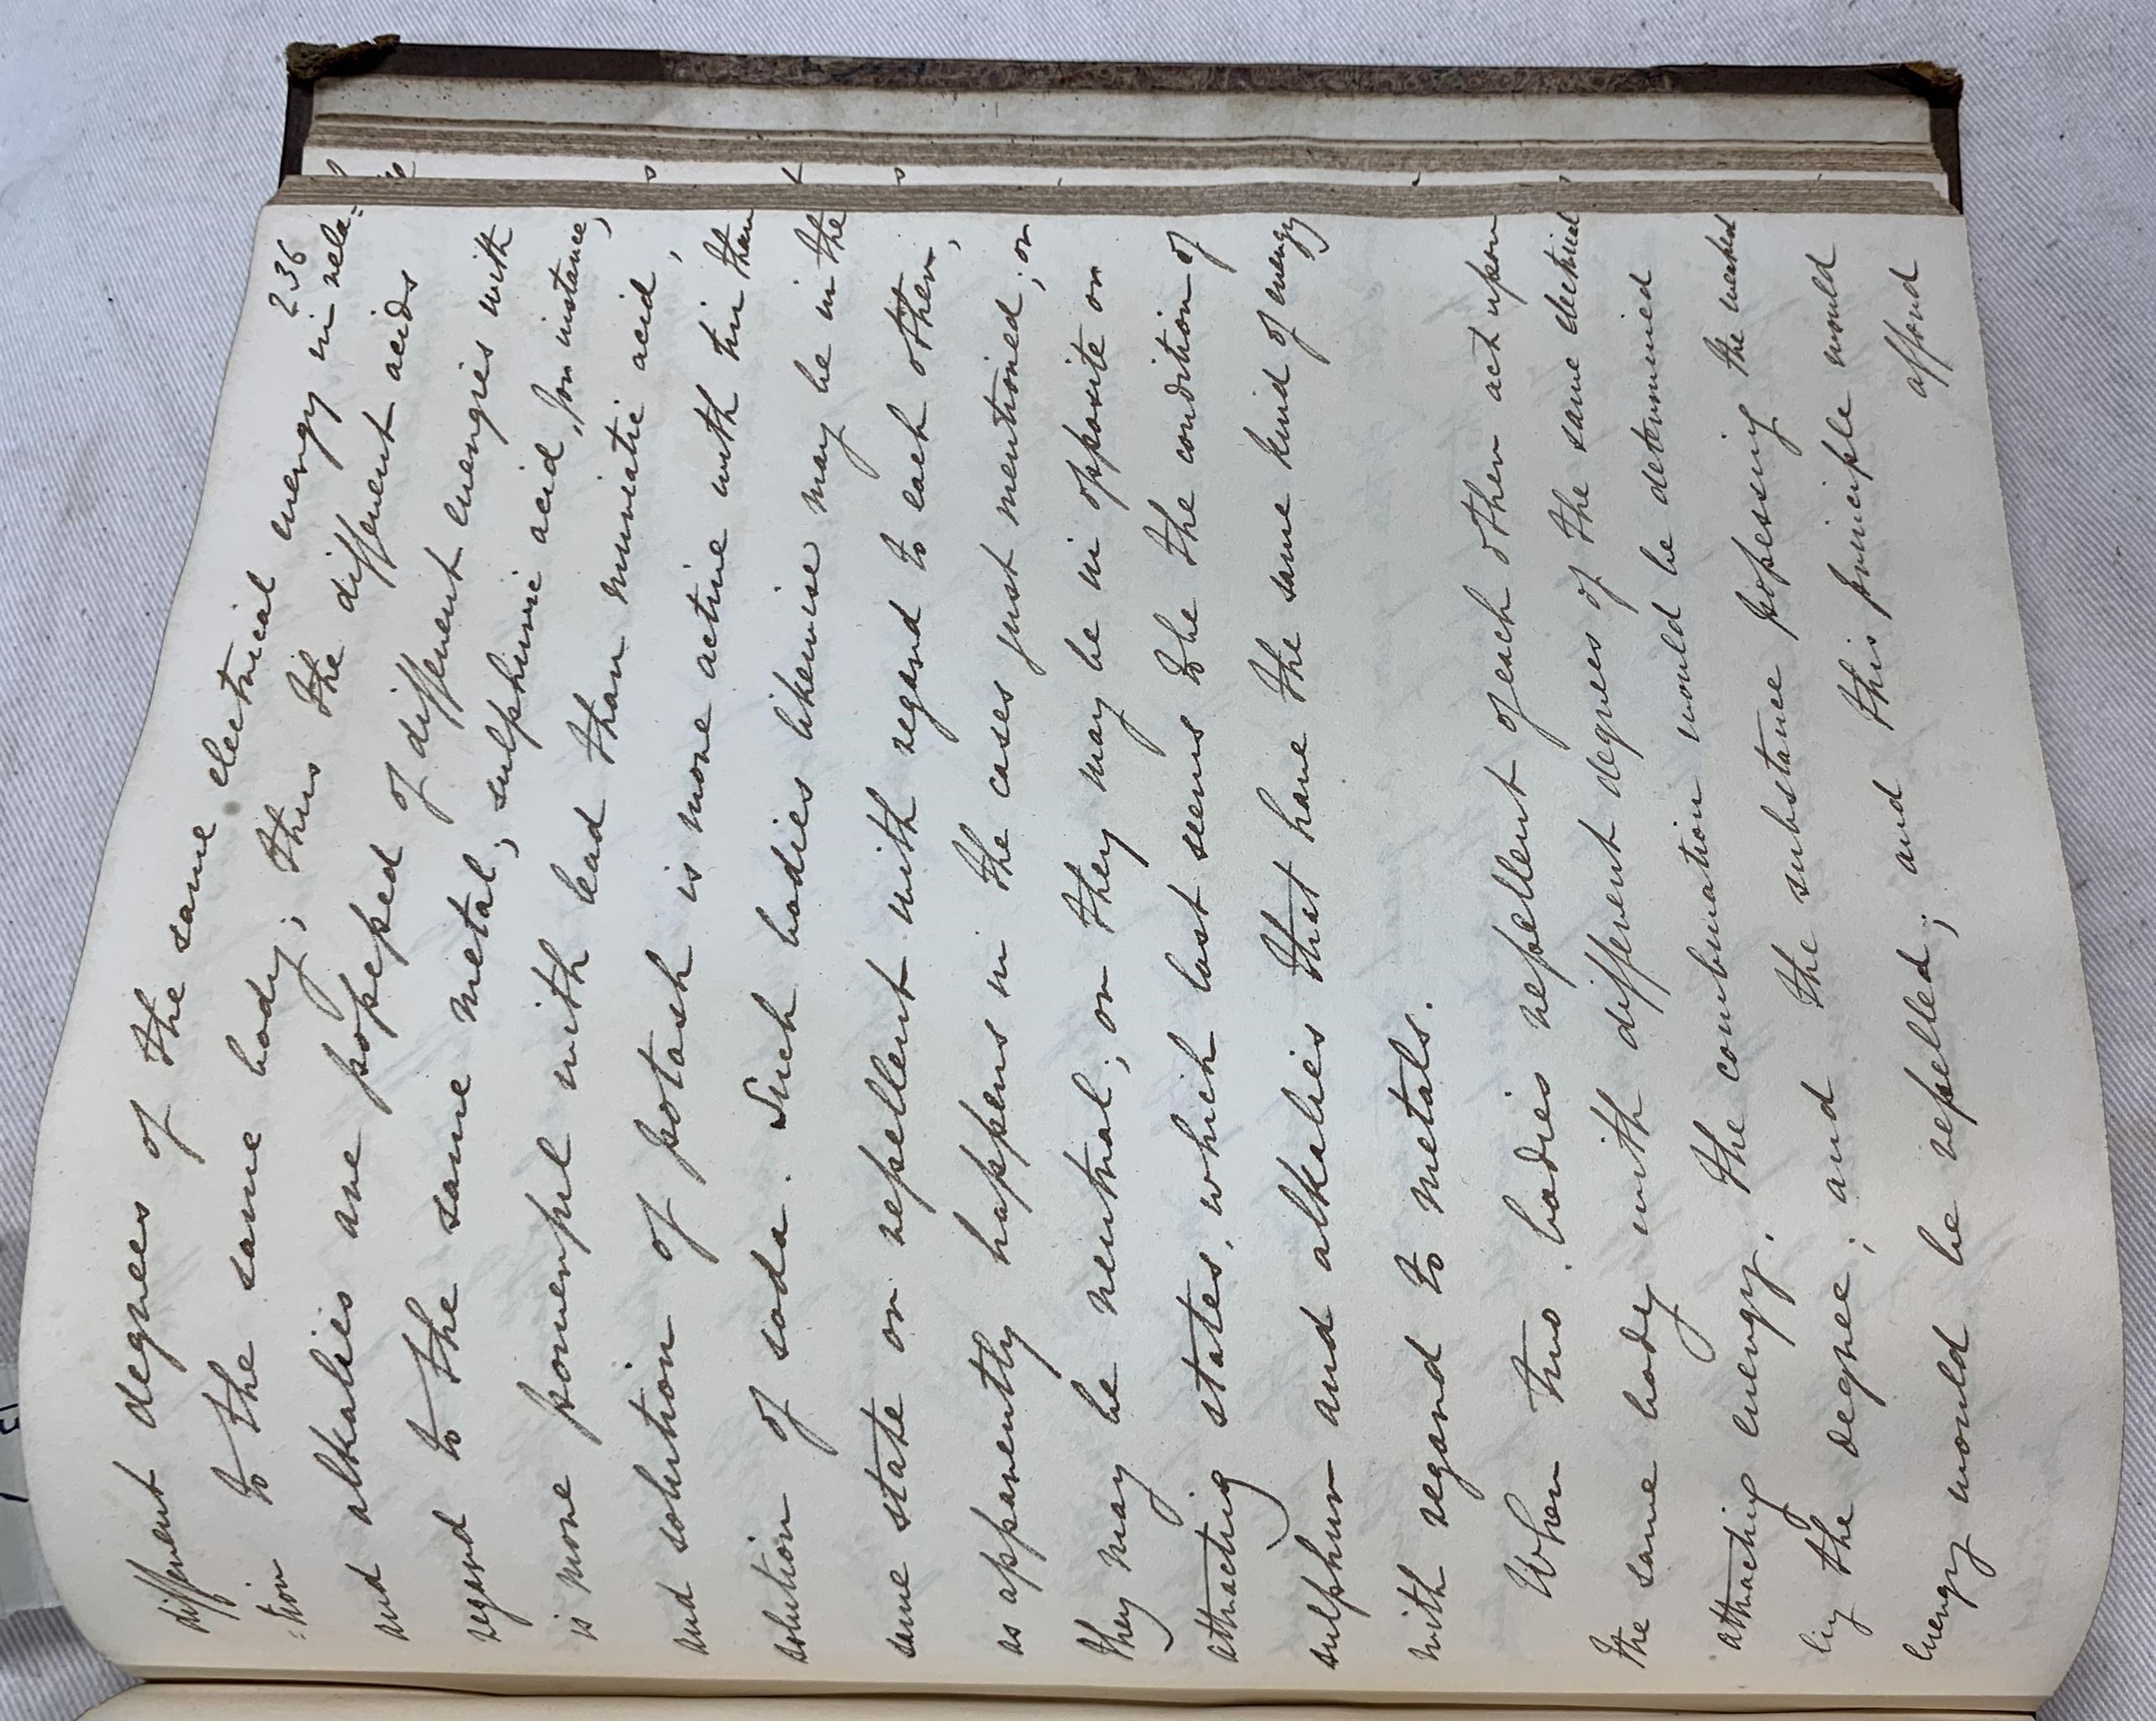 236
different degrees of the same electrical energy in rela=
=tion to the same body; thus the different acids
and alkalies are possessed of different energies with
regard to the same metal; sulphuric acid, for instance,
is more powerful with lead than muriatic acid,
and solution of potash is more active with tin than
solution of soda. Such bodies likewise may be in the
same state or repellent with regard to each other,
as apparently happens in the cases just mentioned; or
they may be neutral; or they may be in opposite or
attracting states. which last seems to be the condition of
sulphur and alkalies that have the same kind of energy
with regard to metals.
When two bodies repellent of each other act upon
the same body with different degrees of the same electrical
attracting energy. the combination would be determined
by the degree; and the substance possessing the weakest
energy would be repelled; and this principle would
afford